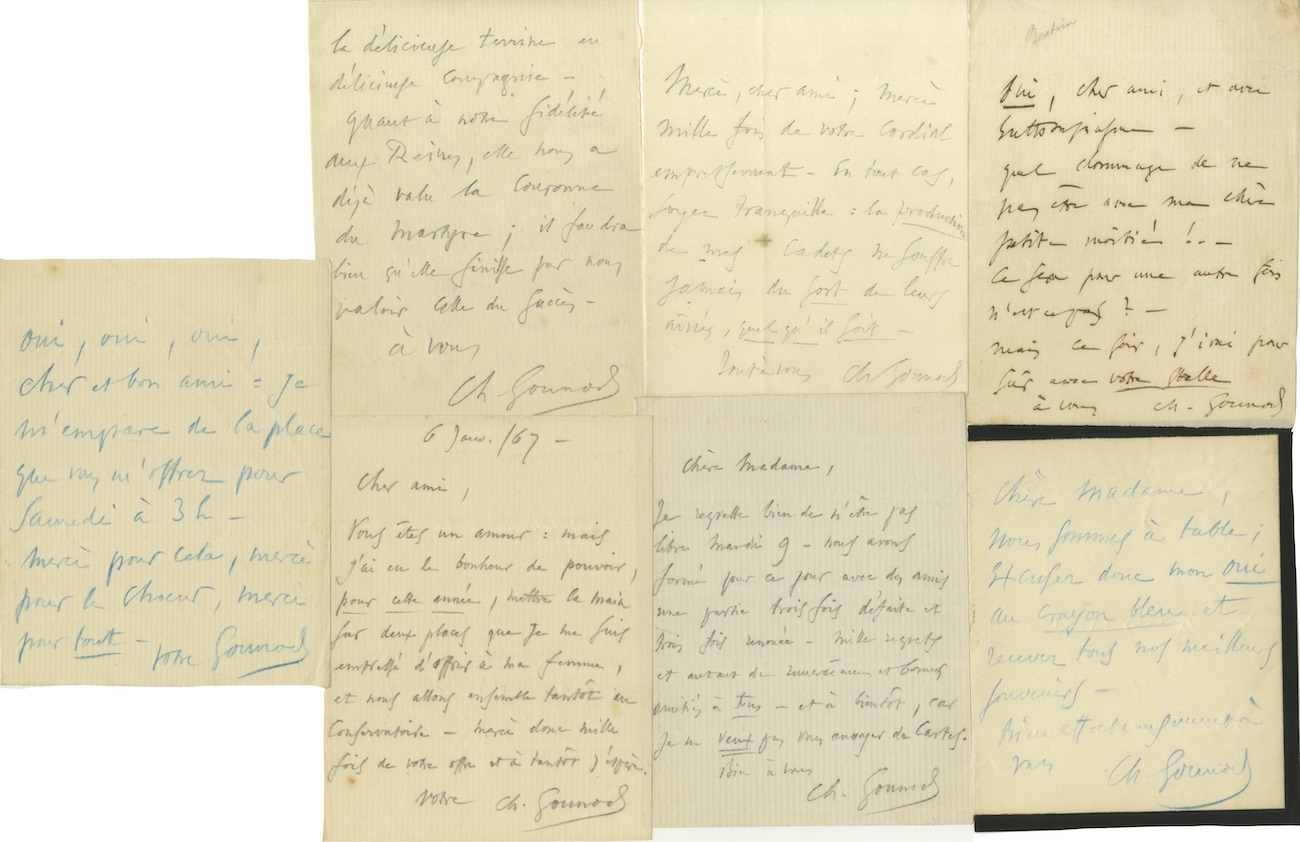 oui, oui, oui,
cher et bon ami = Je
m'empare de la place
que vous m'offrez pour
Samedi à 3h –
merci pour cela, merci
pour le Choeur, merci
pour tout – votre Gounod
la délicieuse terrine en
délicieuse compagnie –
quant à notre fidélité
aux Reines, elle nous a
déjà valu la Couronne
du Martyre ; il faudra
bien qu'elle finisse par nous
valoir celle du Succès –
à vous
Ch Gounod
6 Janv. /67 –
cher ami,
Vous êtes un amour : mais
j'ai eu le bonheur de pouvoir,
pour cette année, mettre la main
sur deux places que je me suis
empressé d'offrir à ma femme,
et nous allons ensemble tantôt au
Conservatoire – merci donc mille
fois de votre offre et à tantôt j'espère.
votre Ch. Gounod
Merci, cher ami ; merci
mille fois de votre cordial
empressement – En tout cas,
soyez tranquille : la production
de mes Cadets ne souffre
jamais du sort de leurs
aînés, quel qu'il soit –
Ch Gounod
chère Madame,
Je regrette bien de n'être pas
libre Mardi 9 – nous avons
formé pour ce jour avec des amis
une partie trois fois défaite et
trois fois renouée – mille regrets
et autant de remerciements et bonnes
amitiés à tous – et à bientôt, car
je ne veux pas vous envoyer de Cartes.
bien à vous
Ch. Gounod
Oui, cher ami, et avec
enthousiasme –
quel dommage de ne
pas être avec ma chère
petite moitié ! . . –
ce sera pour une autre fois
n'est-ce pas ? –
mais ce soir, j'irai pour
sûr avec votre Stalle
à vous ch. Gounod
chère Madame,
nous sommes à table ;
Excusez donc mon oui
au crayon bleu et
recevez tous nos meilleurs
souvenirs –
bien affectueusement à
vous Ch Gounod